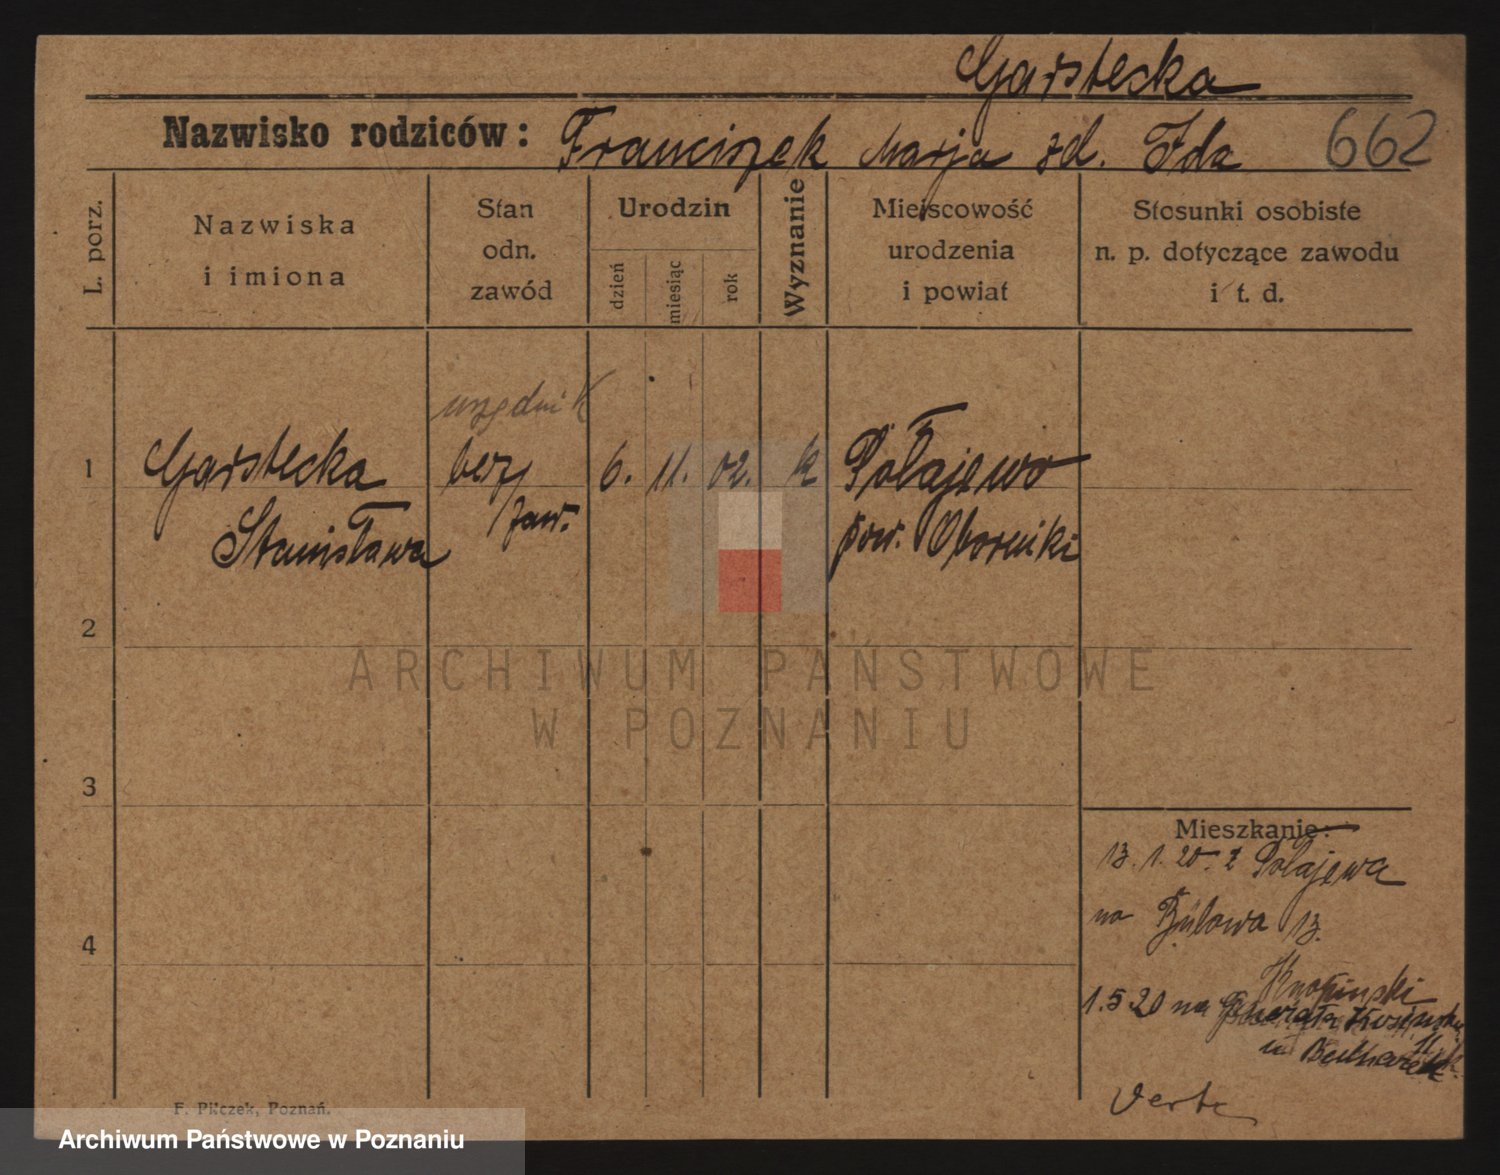 Garstecka
Nazwisko rodziców: Franciszek Marja zd. Ida 662
L. porz.
Nazwiska
i imiona
Stan
odn.
zawód
Urodzin
dzień
miesiąc
rok
Wyznanie
Miejscowość
urodzenia
i powiat
Stosunki osobiste
n. p. dotyczące zawodu
i t. d.
urzędnik
1 Garstecka bez 6. 11. 02. k Połajewo
Stanisława zaw. pow. Oborniki
2
ARCHIWUM PAŃSTWOWE
W POZNANIU
3
Mieszkanie:
13. 1. 20. z Połajewa
na Bülowa 13.
4
1. 5 20 na Generała
Verte
F. Pilczek, Poznań.
Archiwum Państwowe w Poznaniu